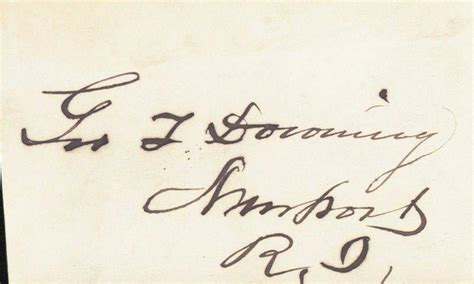 Geo T Downing
Newport
R. I.